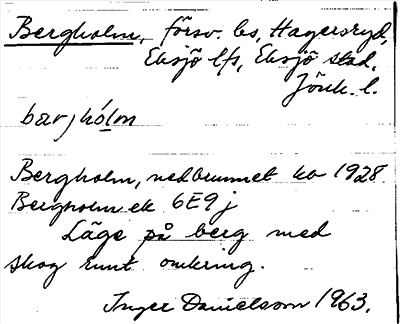 Bergholm, försv. bs, Hagersryd,
Eksjö lfs, Eksjö stad.
Jönk. l.
bærjhólm
Bergholm, nedbrunnet ho 1928.
Bergholm ek 6E9j
Läge på berg med
skog runt omkring.
Inger Danielsson 1963.